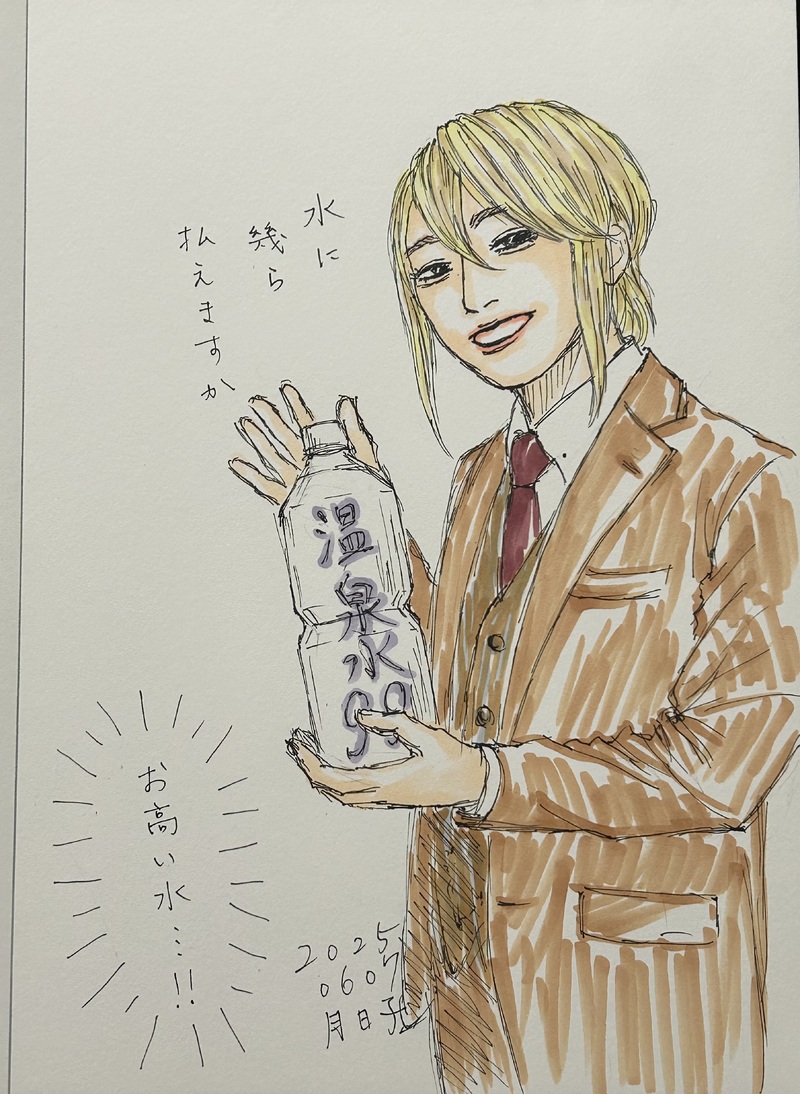 水に
幾ら
払えますか
温泉水99
お高い水…!!
2025
0607
月日子